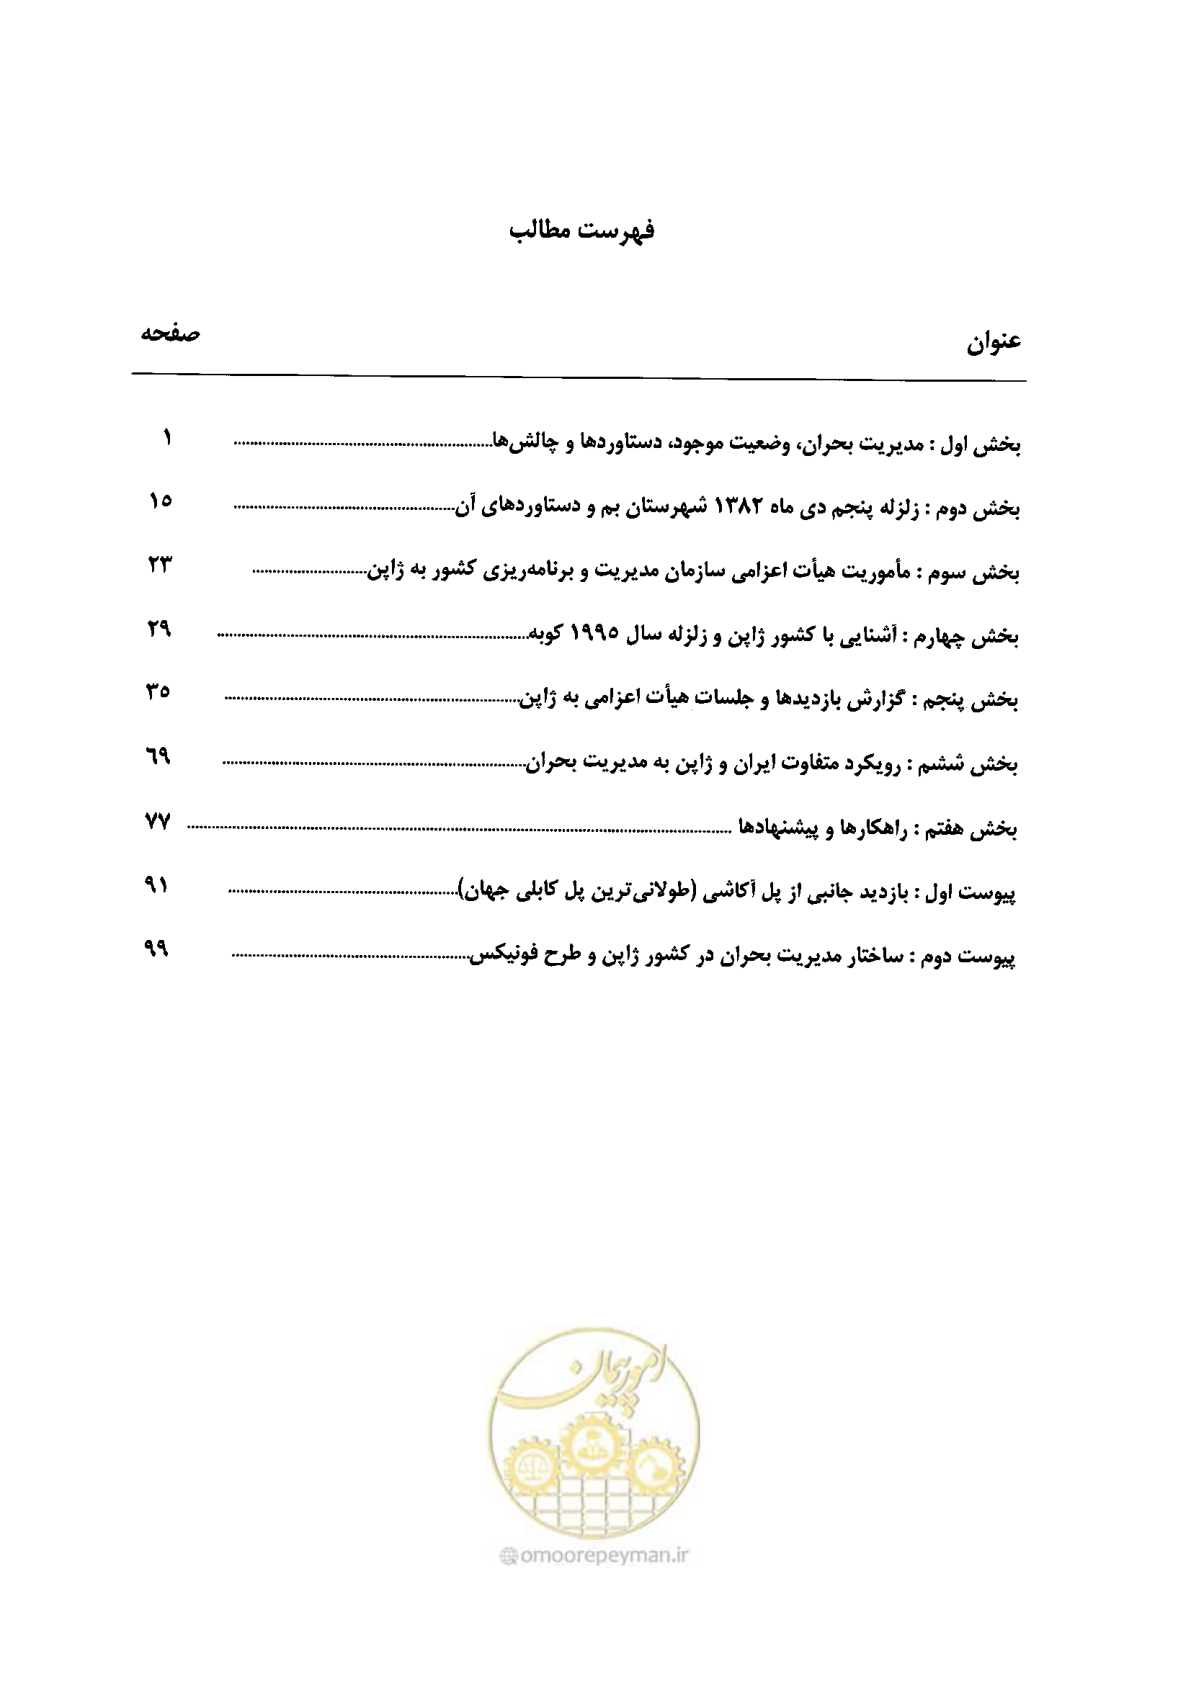 فهرست مطالب
عنوان صفحه
بخش اول : مدیریت بحران، وضعیت موجود، دستاوردها و چالش‌ها ۱
بخش دوم : زلزله پنجم دی ماه ۱۳۸۲ شهرستان بم و دستاوردهای آن ۱۵
بخش سوم : مأموریت هیأت اعزامی سازمان مدیریت و برنامه‌ریزی کشور به ژاپن ۲۳
بخش چهارم : آشنایی با کشور ژاپن و زلزله سال ۱۹۹۵ کوبه ۲۹
بخش پنجم : گزارش بازدیدها و جلسات هیأت اعزامی به ژاپن ۳۵
بخش ششم : رویکرد متفاوت ایران و ژاپن به مدیریت بحران ۶۹
بخش هفتم : راهکارها و پیشنهادها ۷۷
پیوست اول : بازدید جانبی از پل آکاشی (طولانی‌ترین پل کابلی جهان) ۹۱
پیوست دوم : ساختار مدیریت بحران در کشور ژاپن و طرح فونیکس ۹۹
امور پیمان
@omoorepeyman.ir